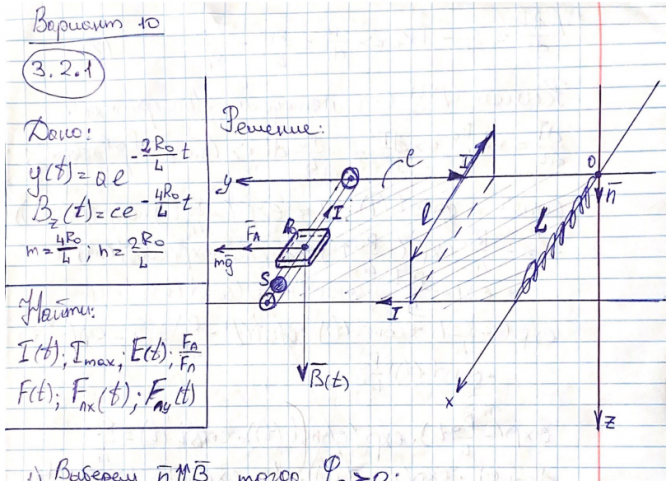 Вариант 10
3.2.1
Дано:
y(t)=ae^{-\frac{2R_0}{L}t}
B_z(t)=ce^{-\frac{4R_0}{L}t}
m=\frac{4R_0}{L}; n=\frac{2R_0}{L}
Найти:
I(t); I_{max}; E(t); \frac{F_A}{F_Л}
F(t); F_{лx}(t); F_{лy}(t)
Решение:
y
ℓ
I
0
n̅
F̅_A
R_0
I
ℓ
L
mg̅
S
I
B̅(t)
x
z
1) Выберем n̅⇈B̅, тогда